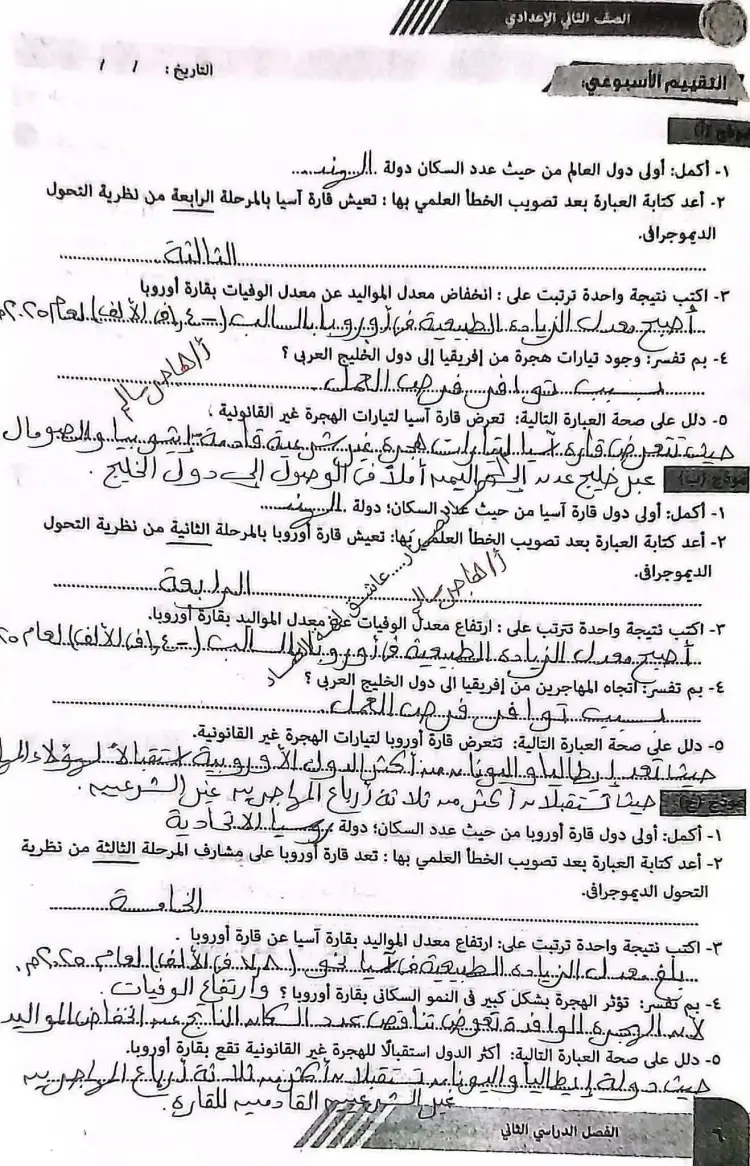 الصف الثاني الإعدادي
التقييم الأسبوعي:
التاريخ : / /
نموذج (أ)
١- أكمل: أولى دول العالم من حيث عدد السكان دولة الهند
٢- أعد كتابة العبارة بعد تصويب الخطأ العلمي بها : تعيش قارة آسيا بالمرحلة الرابعة من نظرية التحول
الديموجرافى.
الثالثة
٣- اكتب نتيجة واحدة ترتبت على : انخفاض معدل المواليد عن معدل الوفيات بقارة أوروبا
أصبح معدل الزيادة الطبيعية في أوروبا بالسالب (-٤ر. في الألف) لعام ٢٠٢٥م
٤- بم تفسر: وجود تيارات هجرة من إفريقيا إلى دول الخليج العربى ؟
بسبب توافر فرص العمل
أ/هاجر سالم
٥- دلل على صحة العبارة التالية: تعرض قارة آسيا لتيارات الهجرة غير القانونية .
حيث تتعرض قارة آسيا لتيارات هجرة غير شرعية قادمة من إثيوبيا والصومال
عبر خليج عدن إلى اليمن أملاً في الوصول إلى دول الخليج .
نموذج (ب)
١- أكمل: أولى دول قارة آسيا من حيث عدد السكان؛ دولة الهند
٢- أعد كتابة العبارة بعد تصويب الخطأ العلمي بها: تعيش قارة أوروبا بالمرحلة الثانية من نظرية التحول
الديموجرافى.
الرابعة
أ/هاجر سالم
٣- اكتب نتيجة واحدة تترتب على : ارتفاع معدل الوفيات عن معدل المواليد بقارة أوروبا.
أصبح معدل الزيادة الطبيعية في أوروبا بالسالب (-٤ر. في الألف) لعام
٤- بم تفسر: اتجاه المهاجرين من إفريقيا الى دول الخليج العربى ؟
بسبب توافر فرص العمل
٥- دلل على صحة العبارة التالية: تتعرض قارة أوروبا لتيارات الهجرة غير القانونية.
حيث تعد إيطاليا واليونان من أكثر الدول الأوروبية استقبالاً لهؤلاء
حيث تستقبلان أكثر من ثلاثة أرباع المهاجرين غير الشرعيين .
نموذج (ج)
١- أكمل: أولى دول قارة أوروبا من حيث عدد السكان؛ دولة روسيا الاتحادية
٢- أعد كتابة العبارة بعد تصويب الخطأ العلمي بها : تعد قارة أوروبا على مشارف المرحلة الثالثة من نظرية
التحول الديموجرافى.
الخامسة
٣- اكتب نتيجة واحدة ترتبت على: ارتفاع معدل المواليد بقارة آسيا عن قارة أوروبا .
بلغ معدل الزيادة الطبيعية في آسيا نحو (٨ر في الألف) لعام ٢٠٢٥م.
٤- بم تفسر: تؤثر الهجرة بشكل كبير فى النمو السكانى بقارة أوروبا ؟ وارتفاع الوفيات .
لأن الهجرة الوافدة تعوض تناقص عدد السكان الناتج عن انخفاض المواليد
٥- دلل على صحة العبارة التالية: أكثر الدول استقبالًا للهجرة غير القانونية تقع بقارة أوروبا.
حيث دولة إيطاليا واليونان تستقبلان أكثر من ثلاثة أرباع المهاجرين
غير الشرعيين القادمين للقارة.
الفصل الدراسي الثاني
٦